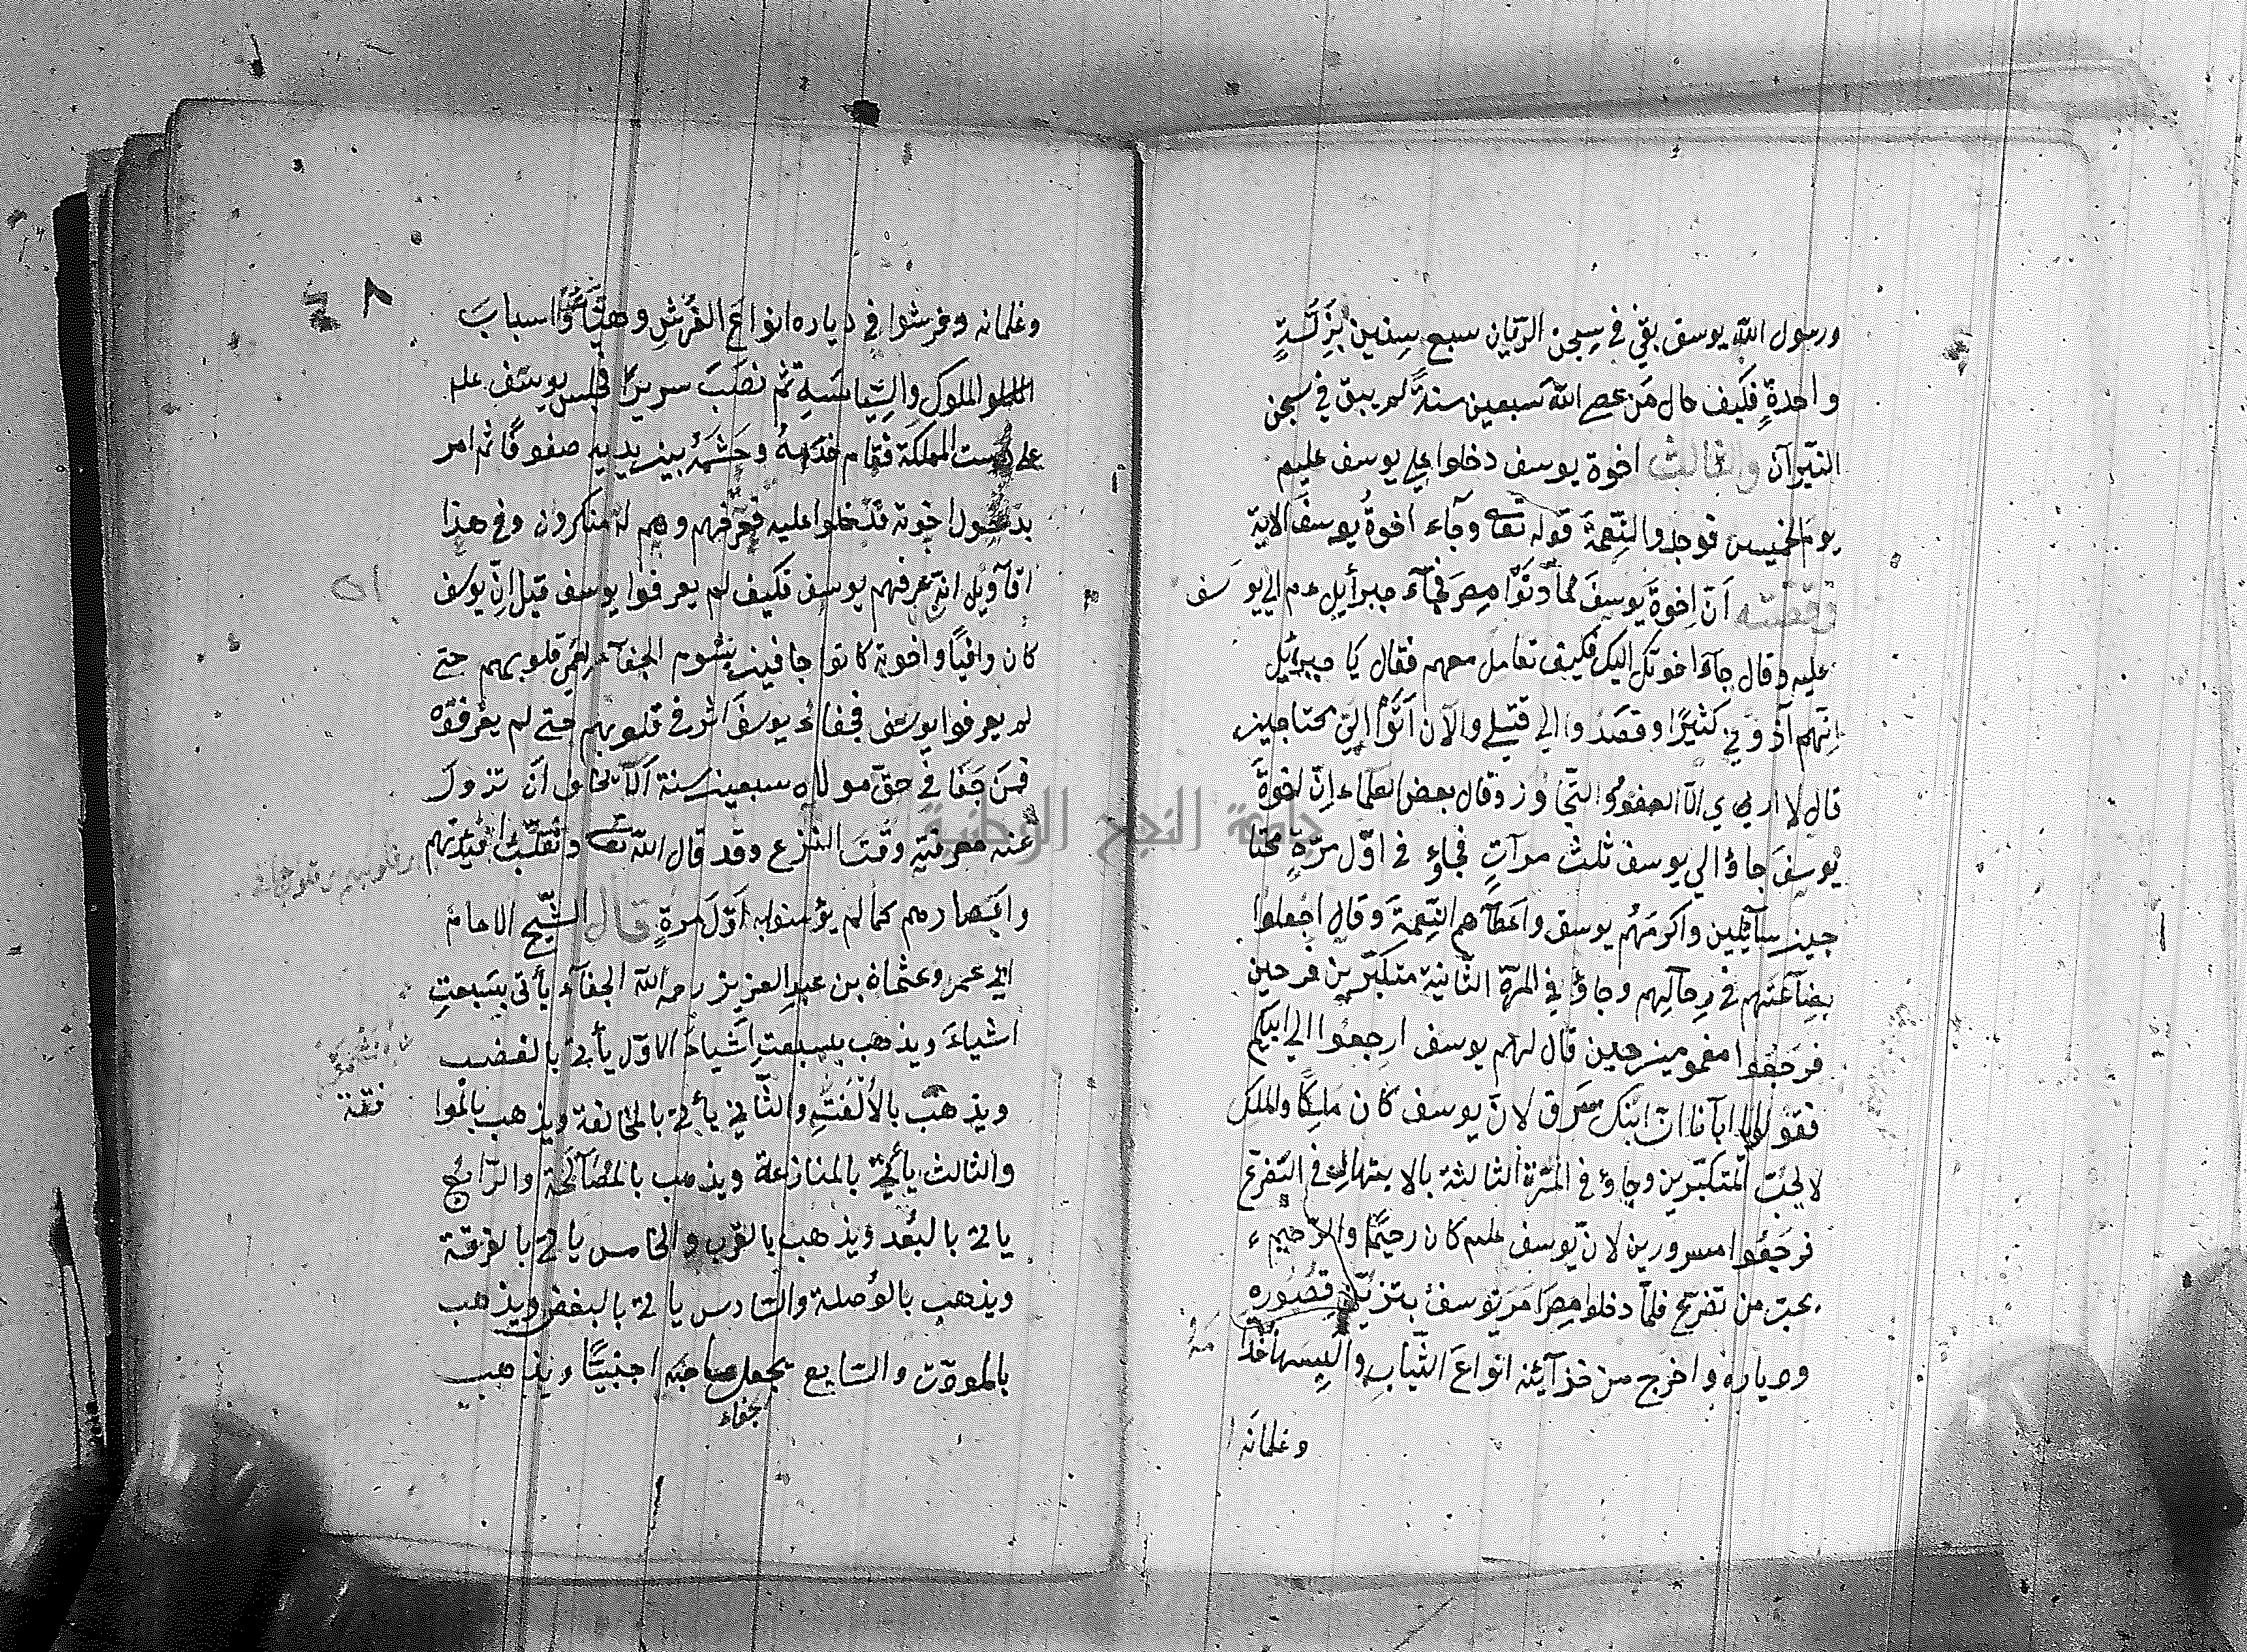 ورسول الله يوسف بقي في سجن الريان سبع سنين بزلة
واحدةٍ فكيف حال من عصى الله سبعين سنةً لم يبق في سجن
النيران والثالث اخوة يوسف دخلوا على يوسف عليم
يوم الخميس فوجدوا النعمة قوله تعا وجآء اخوةُ يوسفَ الاية
وقصّته اَنّ اِخوةَ يوسفَ لما دَنَوْا مِصرَ فجآءَ جبرأيل ءم الي يوسف
عليه وقال جآء اخوتك اليك فكيف تعامل معهم فقال يا جبرئيل
اِنّهم آذوني كثيرًا وقصدوا الي قتلي والآن اَتَوْا اليّ محتاجين
قال لا اري الّا العفو والتجاوز وقال بعض العلماء اِنّ اخوةَ
يوسفَ جاؤا الي يوسف ثلث مرآتٍ فجاؤ في اوّل مرّةٍ محتا
جين سآئلين واكرمَهُم يوسف واعطآهم النِعمةَ وقال اجعلوا
بضاعَتَهم في رِحالِهم وجاؤا في المرّة الثّانية متكبّرين فرحين
فرجعوا مغمومين حين قال لهم يوسف ارجعوا الي ابيكم
فقولوا يا ابآنا ان ابنك سرق لانّ يوسف كان ملِكًا والملك
لا يحبّ المتكبّرين وجاؤ في المرّة الثالثة بالابتهال في التفرّح
فرجَعُوا مسرورين لانّ يوسف عليم كان رحيمًا والرّحيم
يحب من تضرّع فلمّا دخلوا مصرَ امر يوسفُ بتزيّن قصُورِهِ
ودياره واخرج من خزآئنه انواعَ الثّيابِ والبسها خدا مه
وغلمانَه
٢٨
وغلمانه وفرشوا في دياره انواعَ الفُرُشِ وهيّأ اسبابَ
الملوك والسِّياسَةِ ثم نصَبَ سريرًا فجلس يوسف علم
على دست المملكة فقام خدَمهُ وحَشَمهُ بين يديه صفوفًا ثم امر
بدخول اخوته فدخلوا عليه فعرّفهم وهم له منكرون وفي هذا
اقآويل انه عرفهم يوسف فكيف لم يعرفوا يوسف قيل اِنّ يوسف
كان وافيًا واخوته كانوا جافين بشوم الجفآء قلوبهم حتى
لم يعرفوا يوسف فجفاءُ يوسفَ اثر في قلوبهم حتى لم يعرفوه
فمَن جَفَا في حقّ مولاه سبعين سنة الّا يخاف اَن تزولَ
عنه معرفته وقت النّزع وقد قال الله تعا ونقلّب افئدتهم
وابصارهم كما لم يؤمنوا به اَوّلَ مرةٍ قال الشّيخ الامام
ابي عمر وعثمان بن عبد العزيز رحمه الله الجفآء يأتي بسَبعتِ
اشياءَ ويذهب بسبعتِ اَشياءَ الاوّل يأتي بالغضب
ويذهبُ بالاُلفَتِهِ والثّاني يأتي بالمخالفة ويذهب بالموا فقة
والثالث يأتي بالمنازعة ويذهب بالمُصَآلحة والرّابع
ياتي بالبُعد ويذهب بالقُرب والخامس ياتي بالفرقة
ويذهب بالوُصلة والسّادس ياتي بالبغض ويذهب
بالمودّت والسّابع يجعل صاحبَه اجنبيًّا ويذهب
جفاء
جامعة النجاح الوطنية